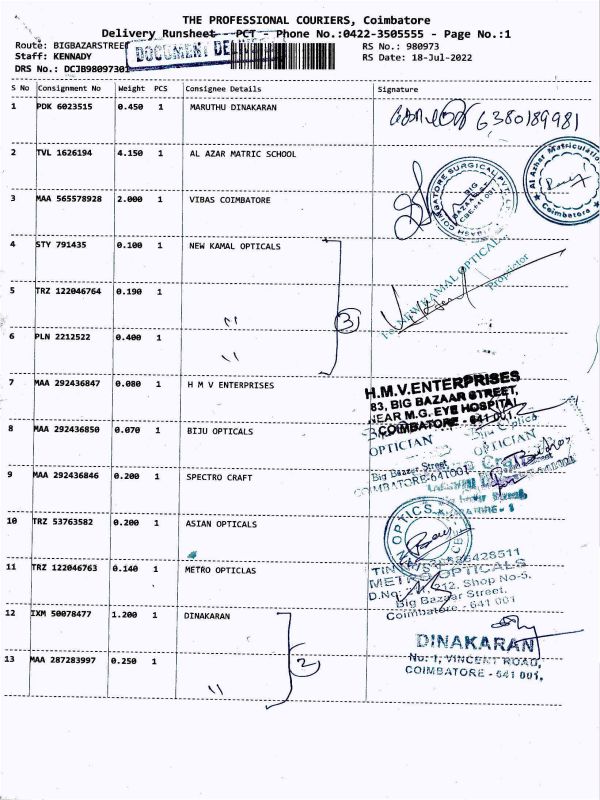 THE PROFESSIONAL COURIERS, Coimbatore
Delivery Runsheet - PCT - Phone No.:0422-3505555 - Page No.:1
Route: BIGBAZARSTREE
RS No.: 980973
Staff: KENNADY
RS Date: 18-Jul-2022
DRS No.: DCJB98097301
DOCUMENT DELI
S No Consignment No Weight PCS Consignee Details Signature
1 PDK 6023515 0.450 1 MARUTHU DINAKARAN
6380189981
2 TVL 1626194 4.150 1 AL AZAR MATRIC SCHOOL
Al Azhar Matriculation
Coimbatore
3 MAA 565578928 2.000 1 VIBAS COIMBATORE
COIMBATORE SURGICAL PVT. LTD
BIG
BAZAAR ST
CBE-641 001
4 STY 791435 0.100 1 NEW KAMAL OPTICALS
For NEW KAMAL OPTICAL
Proprietor
5 TRZ 122046764 0.190 1 "
3
6 PLN 2212522 0.400 1 "
7 MAA 292436847 0.080 1 H M V ENTERPRISES
H.M.V.ENTERPRISES
83, BIG BAZAAR STREET,
NEAR M.G. EYE HOSPITAL
COIMBATORE - 641 001.
8 MAA 292436850 0.070 1 BIJU OPTICALS
OPTICIAN
OPTICIAN
Big Bazaar Street
COIMBATORE-641001
9 MAA 292436846 0.200 1 SPECTRO CRAFT
10 TRZ 53763582 0.200 1 ASIAN OPTICALS
OPTICS
11 TRZ 122046763 0.140 1 METRO OPTICLAS
METRO OPTICALS
212, Shop No-5,
Big Bazaar Street,
Coimbatore - 641 001
12 IXM 50078477 1.200 1 DINAKARAN
DINAKARAN
No: 1, VINCENT ROAD,
COIMBATORE - 641 001,
13 MAA 287283997 0.250 1 "
2